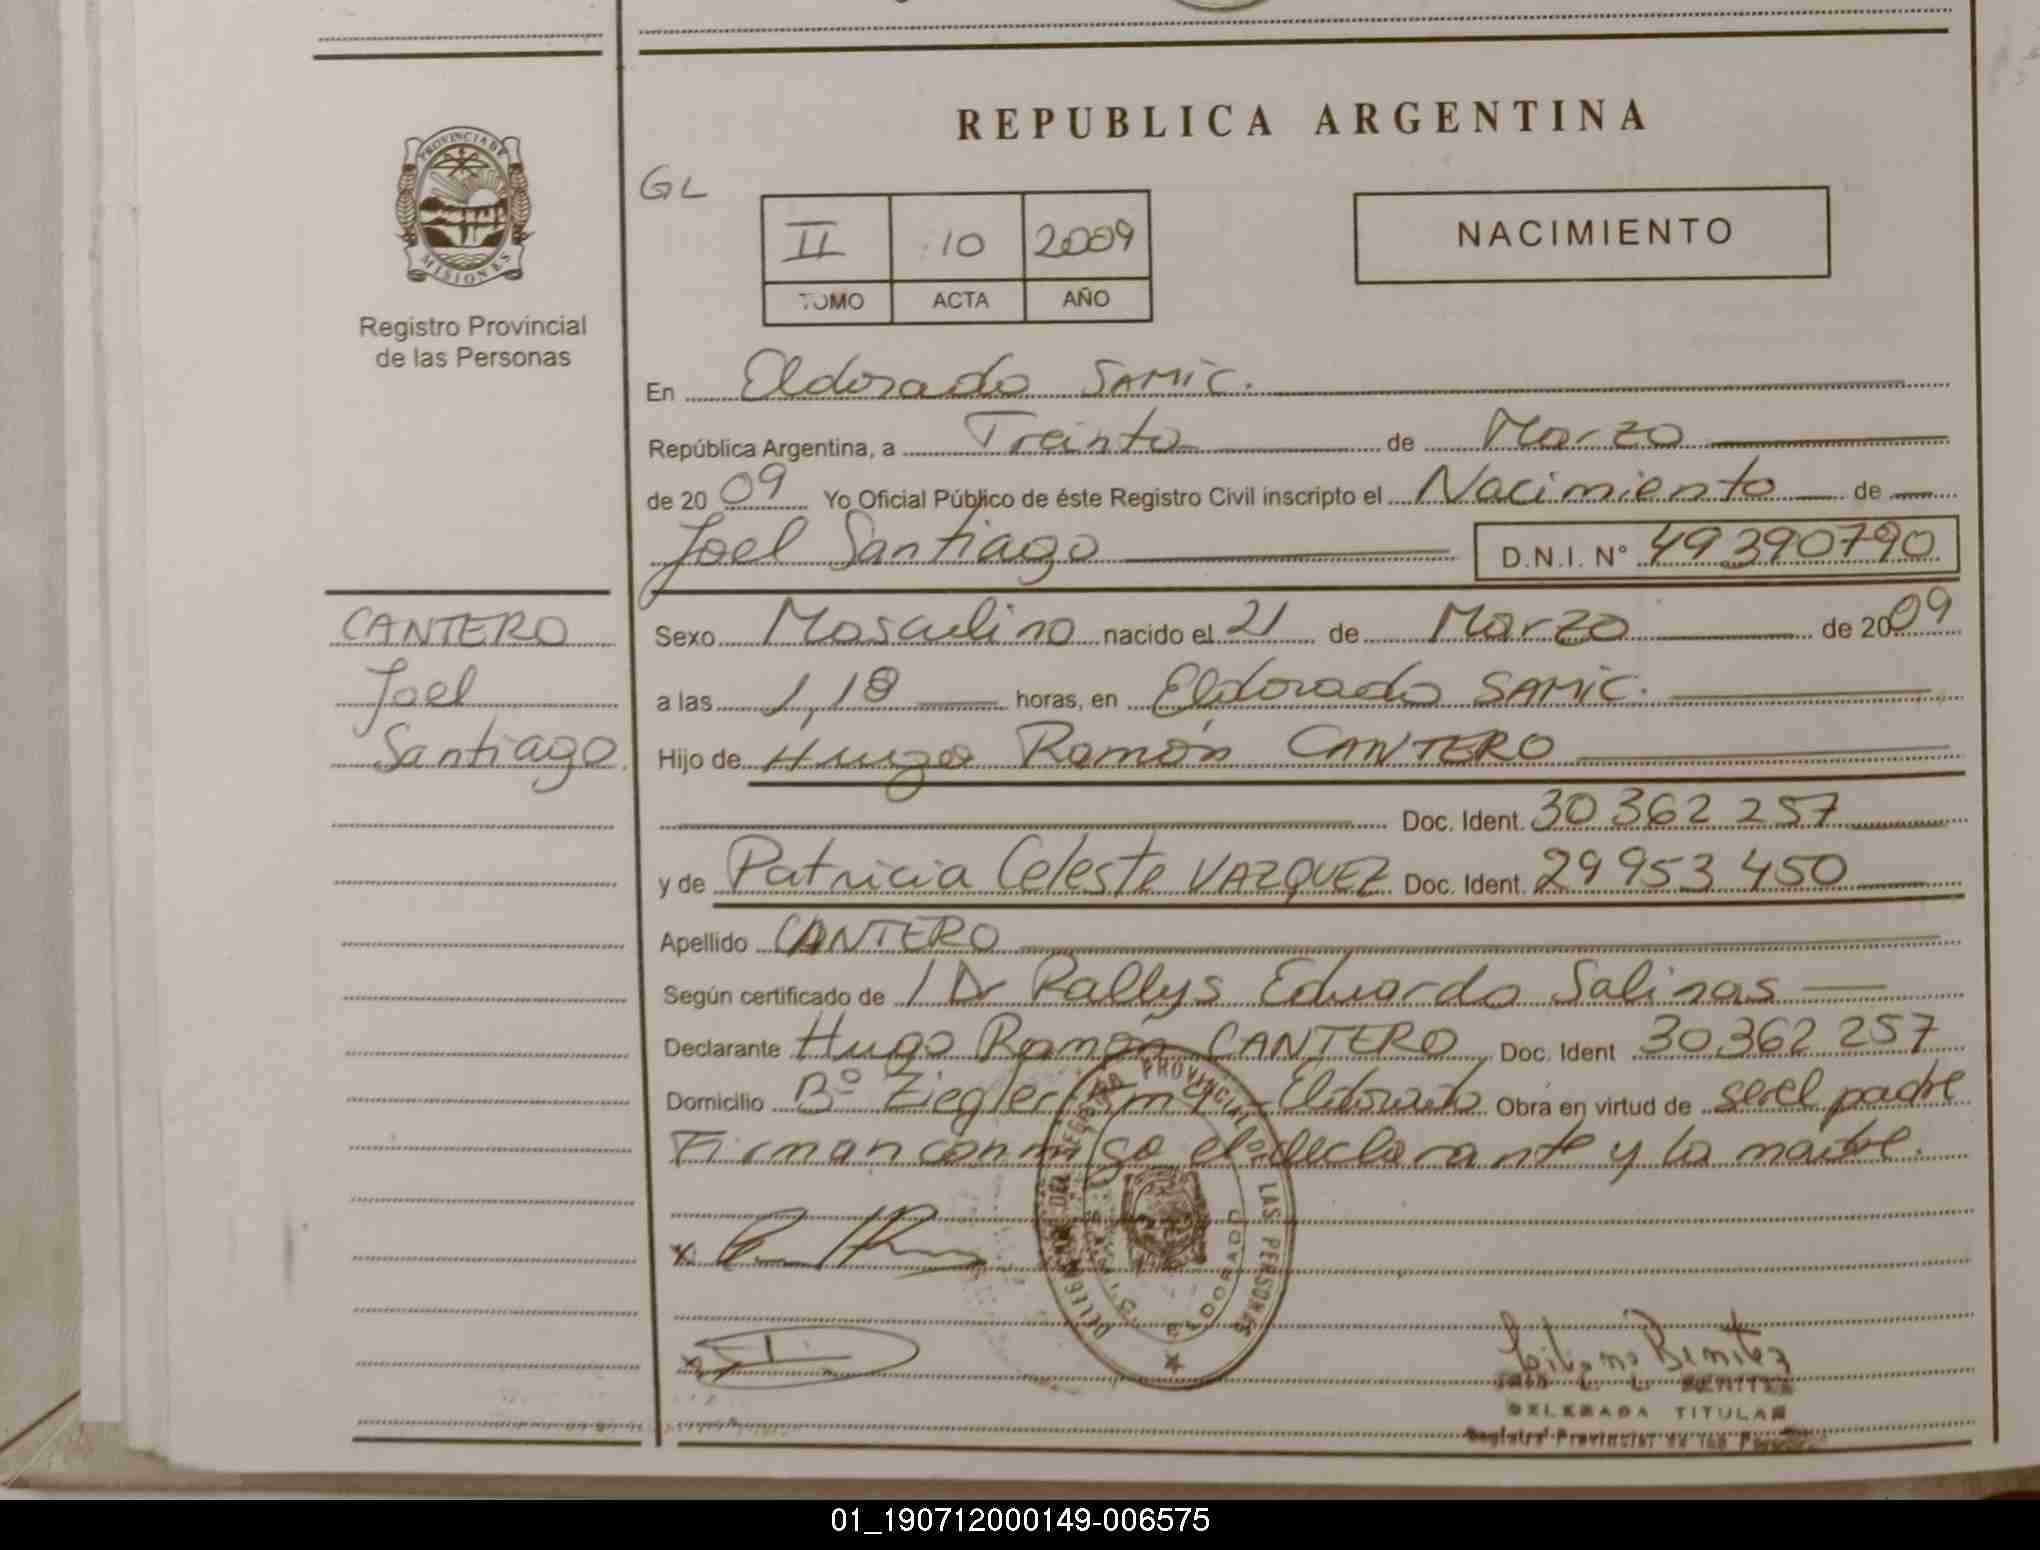 REPUBLICA ARGENTINA
PROVINCIA DE
MISIONES
Registro Provincial
de las Personas
GL
II 10 2009
TOMO ACTA AÑO
NACIMIENTO
En Eldorado SAMIC.
República Argentina, a Treinta de Marzo
de 2009 Yo Oficial Público de éste Registro Civil inscripto el Nacimiento de
Joel Santiago D.N.I. N° 49390790
CANTERO
Joel
Santiago.
Sexo Masculino nacido el 21 de Marzo de 2009
a las 1,18 horas, en Eldorado SAMIC.
Hijo de Hugo Ramón CANTERO
Doc. Ident. 30362257
y de Patricia Celeste VAZQUEZ Doc. Ident. 29953450
Apellido CANTERO
Según certificado de Dr Rallys Eduardo Salinas
Declarante Hugo Ramón CANTERO Doc. Ident 30.362 257
Domicilio B° Ziegler Km 9 Eldorado Obra en virtud de ser el padre
Firman conmigo el declarante y la madre.
x
x
PROVINCIAL DE LAS PERSONAS
ELDORADO
Benitez
BENITEZ
DELEGADA TITULAR
Registro Provincial de las Personas
01_190712000149-006575